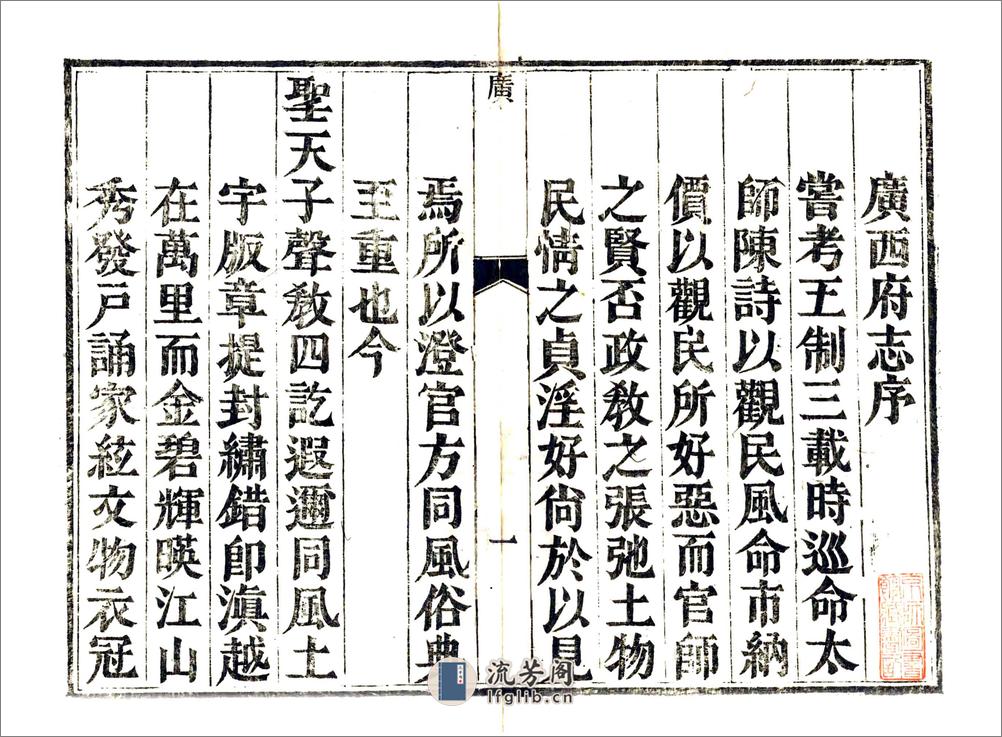 廣西府志序
嘗考王制三載時巡命太
師陳詩以觀民風命市納
價以觀民所好惡而官師
之賢否政教之張弛土物
民情之貞淫好尙於以見
廣
一
焉所以澄官方同風俗典
至重也今
聖天子聲教四訖遐邇同風土
宇版章提封繡錯卽滇越
在萬里而金碧輝暎江山
秀發戸誦家絃文物衣冠
流芳阁
lfglib.cn